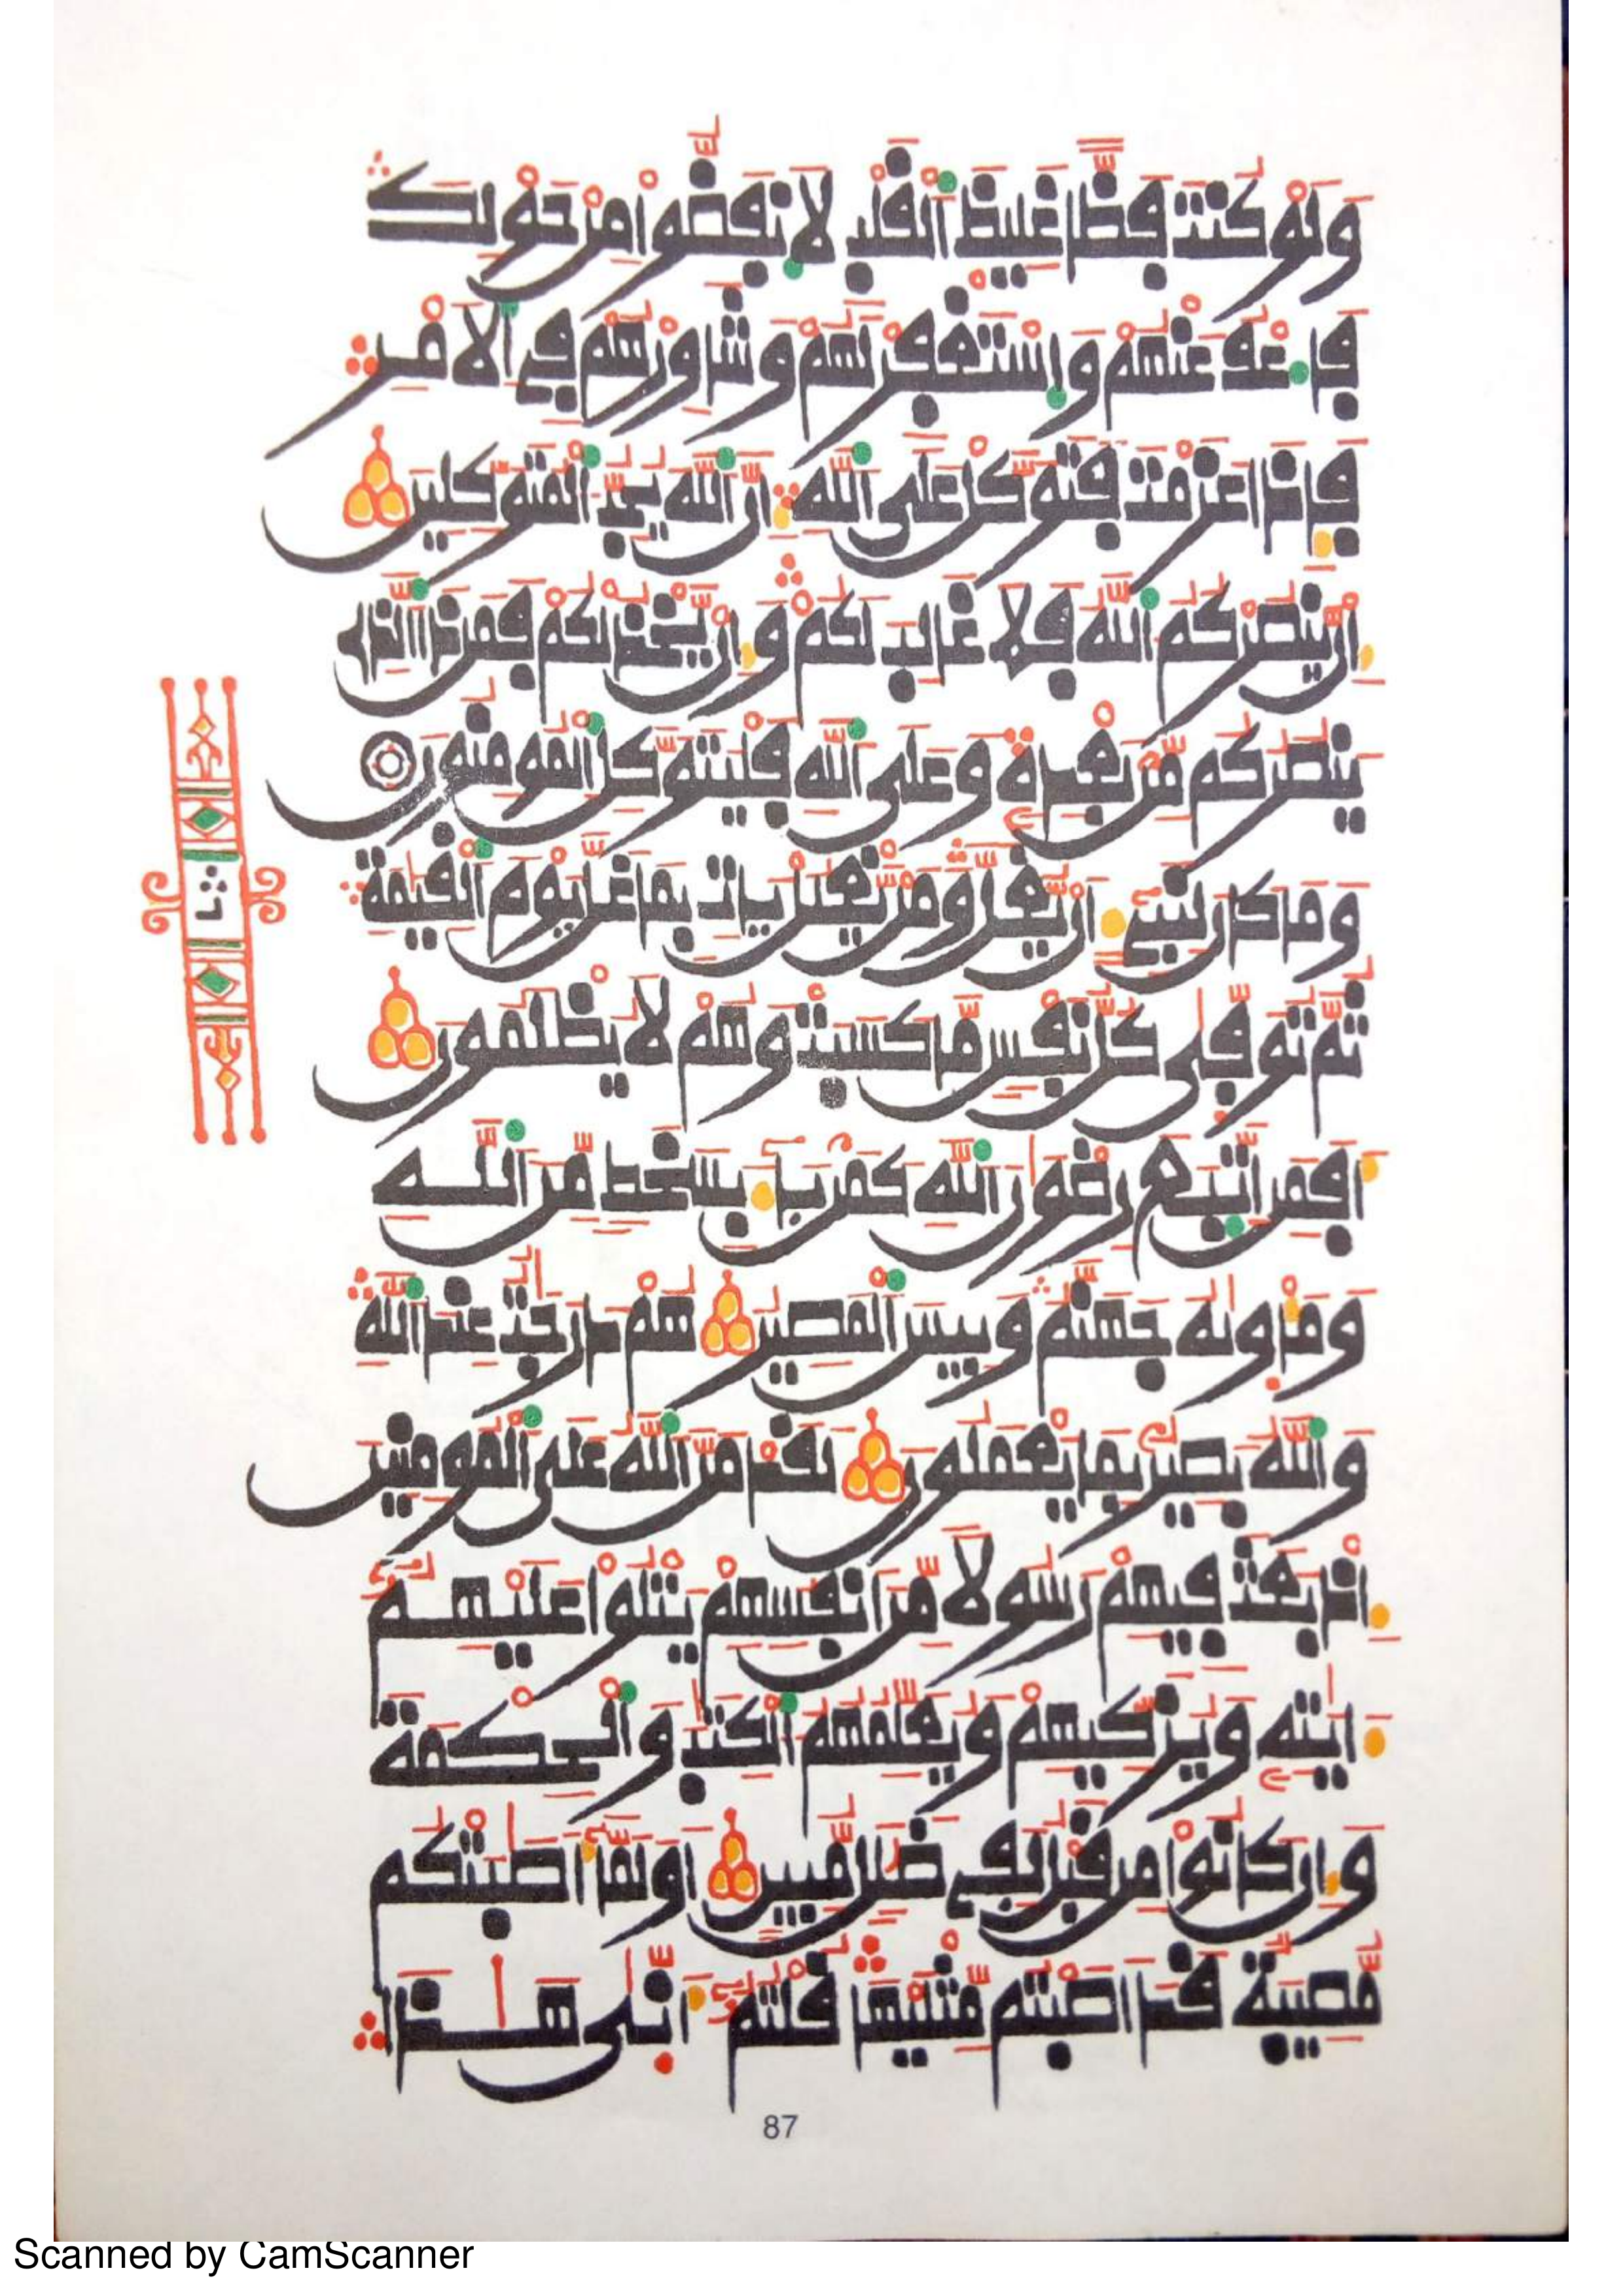 وَلَوْ كُنتَ فَظًّا غَلِيظَ اَلْقَلْبِ لَانفَضُّواْ مِنْ حَوْلِكَ
فَاعْفُ عَنْهُمْ وَاسْتَغْفِرْ لَهُمْ وَشَاوِرْهُمْ فِے اِلَامْرِ
فَإِذَا عَزَمْتَ فَتَوَكَّلْ عَلَى اَللَّهِ إِنَّ اَللَّهَ يُحِبُّ اُلْمُتَوَكِّلِينَ
إِنْ يَّنصُرْكُمُ اُللَّهُ فَلَا غَالِبَ لَكُمْ وَإِنْ يَّخْذُلْكُمْ فَمَن ذَا اَلذِے
يَنصُرُكُم مِّنْ بَعْدِهِ وَعَلَى اَللَّهِ فَلْيَتَوَكَّلِ اِلْمُومِنُونَ
وَمَا كَانَ لِنَبِےٍٓ أَنْ يُّغَلَّ وَمَنْ يَّغْلُلْ يَاتِ بِمَا غَلَّ يَوْمَ اَلْقِيَٰمَةِ
ثُمَّ تُوَفّٰى كُلُّ نَفْسٍ مَّا كَسَبَتْ وَهُمْ لَا يُظْلَمُونَ
أَفَمَنِ اِتَّبَعَ رِضْوَٰنَ اَللَّهِ كَمَنۢ بَآءَ بِسَخَطٍ مِّنَ اَللَّهِ
وَمَأْوٰيٰهُ جَهَنَّمُ وَبِيسَ اَلْمَصِيرُ هُمْ دَرَجَٰتٌ عِندَ اَللَّهِ
وَاللَّهُ بَصِيرٌۢ بِمَا يَعْمَلُونَ لَقَدْ مَنَّ اَللَّهُ عَلَى اَلْمُومِنِينَ
إِذْ بَعَثَ فِيهِمْ رَسُولًا مِّنَ اَنفُسِهِمْ يَتْلُواْ عَلَيْهِمُۥٓ
ءَايَٰتِهِۦ وَيُزَكِّيهِمْ وَيُعَلِّمُهُمُ اُلْكِتَٰبَ وَالْحِكْمَةَ
وَإِن كَانُواْ مِن قَبْلُ لَفِے ضَلَٰلٍ مُّبِينٍ اَوَلَمَّآ أَصَٰبَتْكُم
مُّصِيبَةٌ قَدَ اَصَبْتُم مِّثْلَيْهَا قُلْتُمُۥٓ أَنّٰى هَٰذَا
ثمن
87
Scanned by CamScanner